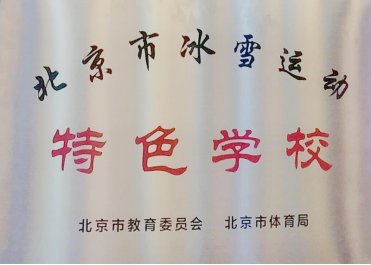 北京市冰雪运动
特色学校
北京市教育委员会 北京市体育局